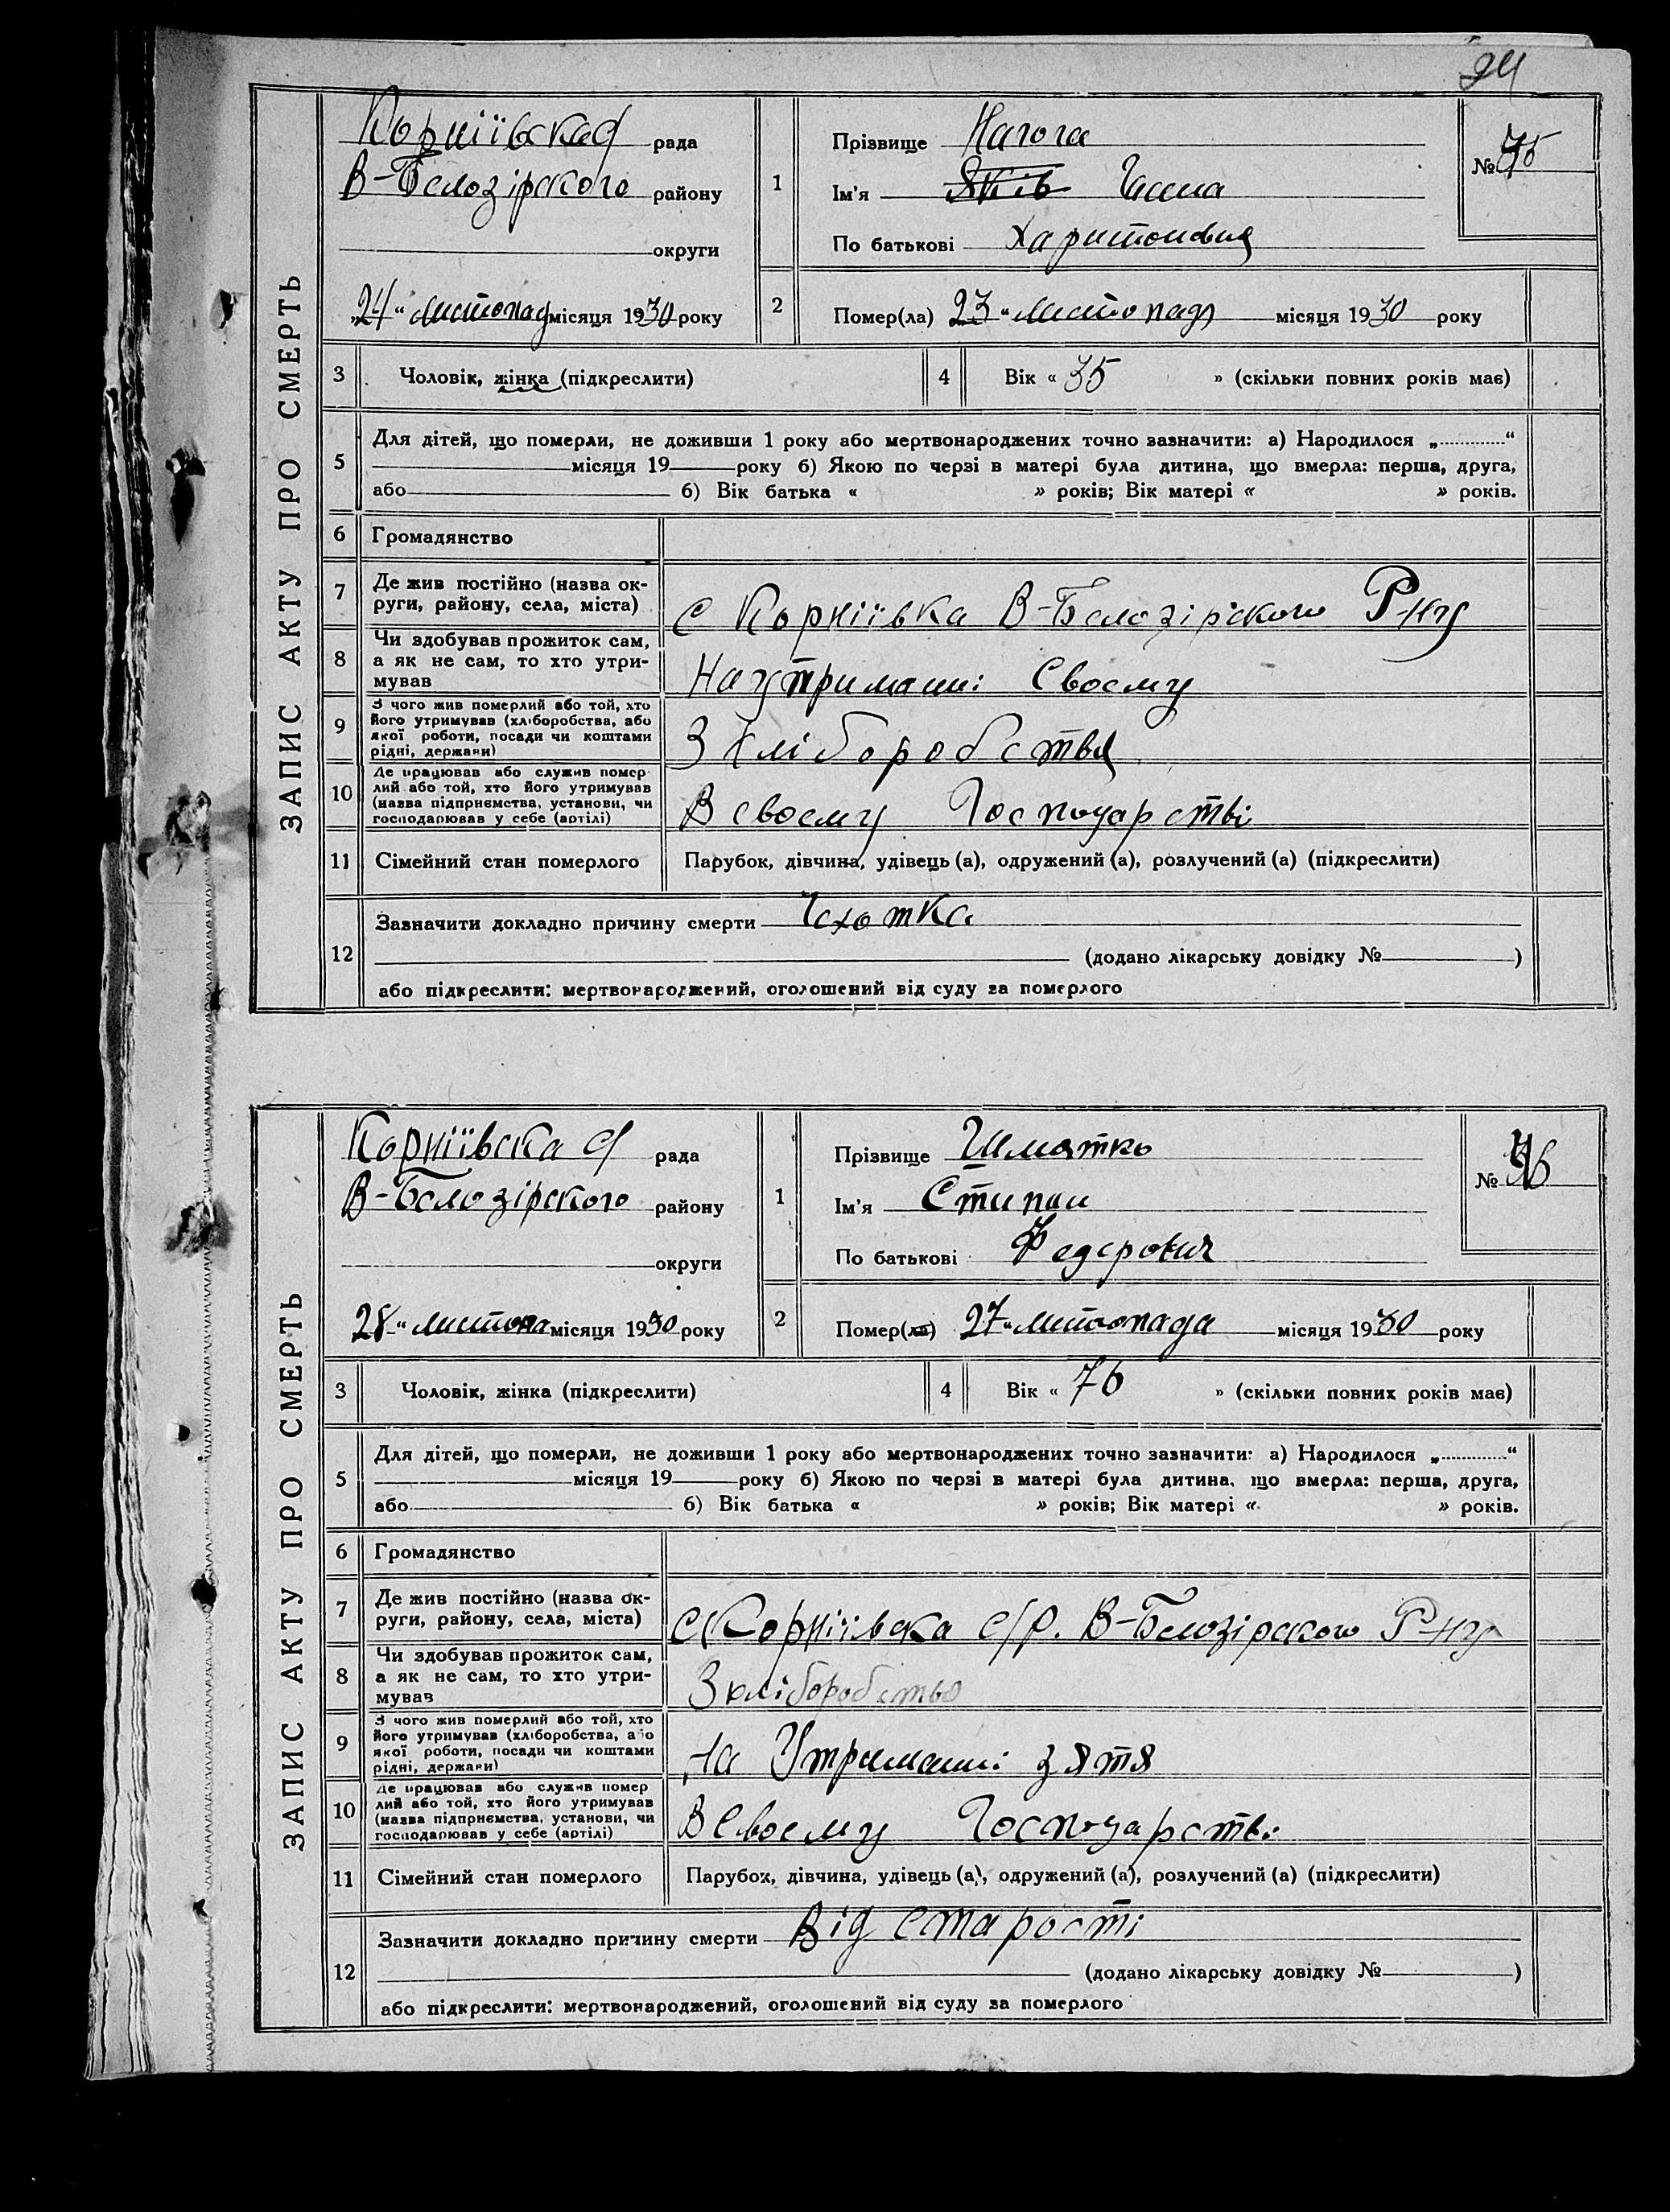 24
ЗАПИС АКТУ ПРО СМЕРТЬ
Корніївська рада
В-Белозірского району
округи
„24“ листопад місяця 1930 року
1
Прізвище Нагога
Ім'я Яків Ганна
По батькові Харитоновна
№ 75
2
Помер(ла) 23 „ листопада місяця 1930 року
3 Чоловік, жінка (підкреслити)
4 Вік « 35 » (скільки повних років має)
5
Для дітей, що померли, не доживши 1 року або мертвонароджених точно зазначити: а) Народилося „..........“
місяця 19 року б) Якою по черзі в матері була дитина, що вмерла: перша, друга,
або б) Вік батька « » років; Вік матері « » років.
6 Громадянство
7 Де жив постійно (назва ок-
руги, району, села, міста)
с Корніївка В-Белозірского Р-ну
8 Чи здобував прожиток сам,
а як не сам, то хто утри-
мував
На утриманні Своєму
9 З чого жив померлий або той, хто
його утримував (хліборобства, або
якої роботи, посади чи коштами
рідні, держави)
З хліборобства
10 Де працював або служив помер-
лий або той, хто його утримував
(назва підприємства, установи, чи
господарював у себе (артілі)
В своєму Господарстві
11 Сімейний стан померлого
Парубок, дівчина, удівець (а), одружений (а), розлучений (а) (підкреслити)
12
Зазначити докладно причину смерти Чахотка
(додано лікарську довідку № )
або підкреслити: мертвонароджений, оголошений від суду за померлого
ЗАПИС АКТУ ПРО СМЕРТЬ
Корніївська с/ рада
В-Белозірского району
округи
28 „ листопа місяця 1930 року
1
Прізвище Шматко
Ім'я Стипан
По батькові Федерович
№ 76
2
Помер(ла) 27 „ листопада місяця 1930 року
3 Чоловік, жінка (підкреслити)
4 Вік « 76 » (скільки повних років має)
5
Для дітей, що померли, не доживши 1 року або мертвонароджених точно зазначити: а) Народилося „..........“
місяця 19 року б) Якою по черзі в матері була дитина, що вмерла: перша, друга,
або б) Вік батька « » років; Вік матері « » років.
6 Громадянство
7 Де жив постійно (назва ок-
руги, району, села, міста)
с Корніївска с/р. В-Белозірского Р-ну
8 Чи здобував прожиток сам,
а як не сам, то хто утри-
мував
З хліборобства
9 З чого жив померлий або той, хто
його утримував (хліборобства, або
якої роботи, посади чи коштами
рідні, держави)
на Утриманні зятя
10 Де працював або служив помер
лий або той, хто його утримував
(назва підприємства, установи, чи
господарював у себе (артілі)
В Своєму Господарстві
11 Сімейний стан померлого
Парубок, дівчина, удівець (а), одружений (а), розлучений (а) (підкреслити)
12
Зазначити докладно причину смерти Від старості
(додано лікарську довідку № )
або підкреслити: мертвонароджений, оголошений від суду за померлого